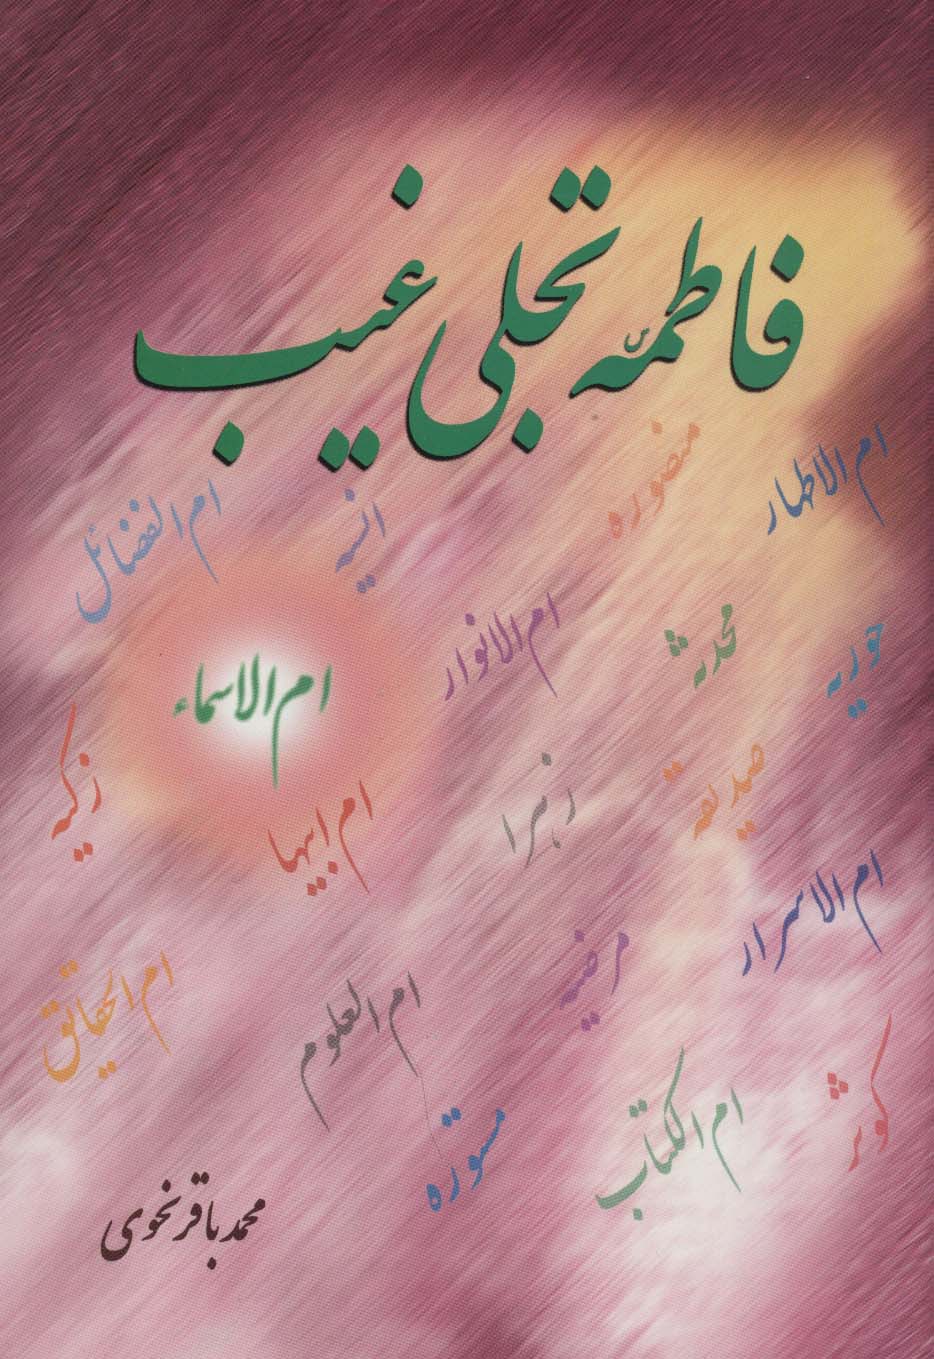 فاطمّه تجلی غیب
ام الاطهار
منصوره
انسیه
ام الفضائل
حوریه
محدثه
ام الانوار
ام الاسماء
صدیقه
زهرا
ام ابیها
زکیه
ام الاسرار
مرضیه
ام العلوم
ام الحقائق
کوثر
ام الکتاب
مستوره
محمدباقر نخوی